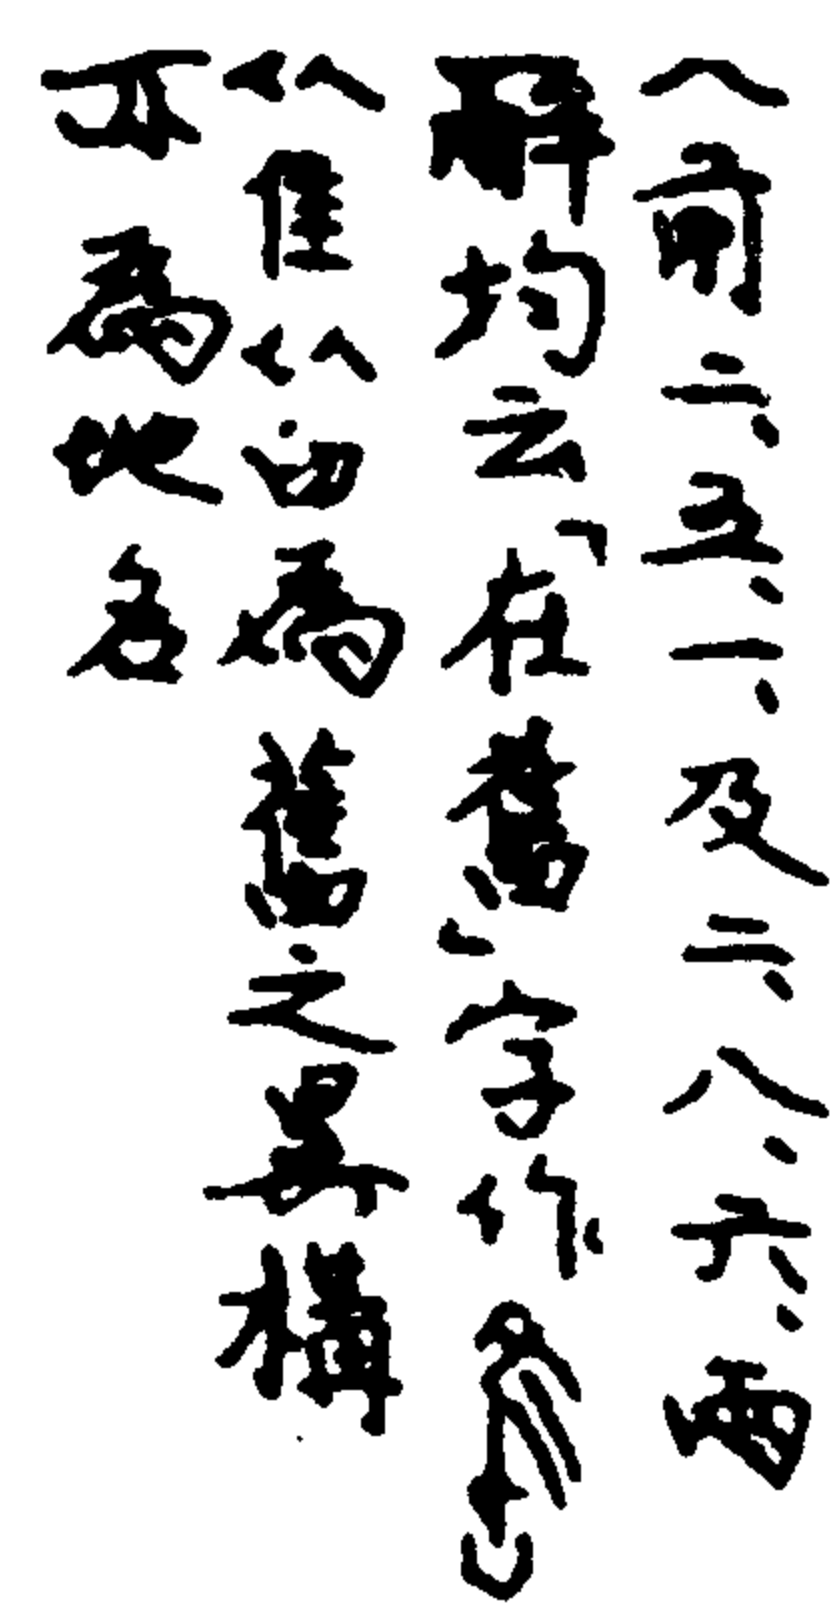 ︿前二、五、一、及二、八、六、兩
辭均云「在舊」字作
从隹从臼為舊之異構
亦為地名